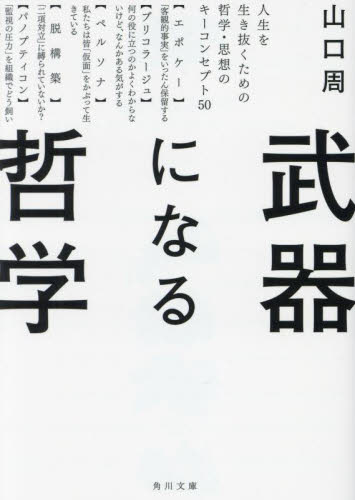 山口周
人生を
生き抜くための
哲学・思想の
キーコンセプト50
【エポケー】
「客観的事実」をいったん保留する
【ブリコラージュ】
何の役に立つのかよくわからな
いけど、なんかある気がする
【ペルソナ】
私たちは皆「仮面」をかぶって生
きている
【脱構築】
「二項対立」に縛られていないか？
【パノプティコン】
「監視の圧力」を組織でどう飼い
武器
になる
哲学
角川文庫